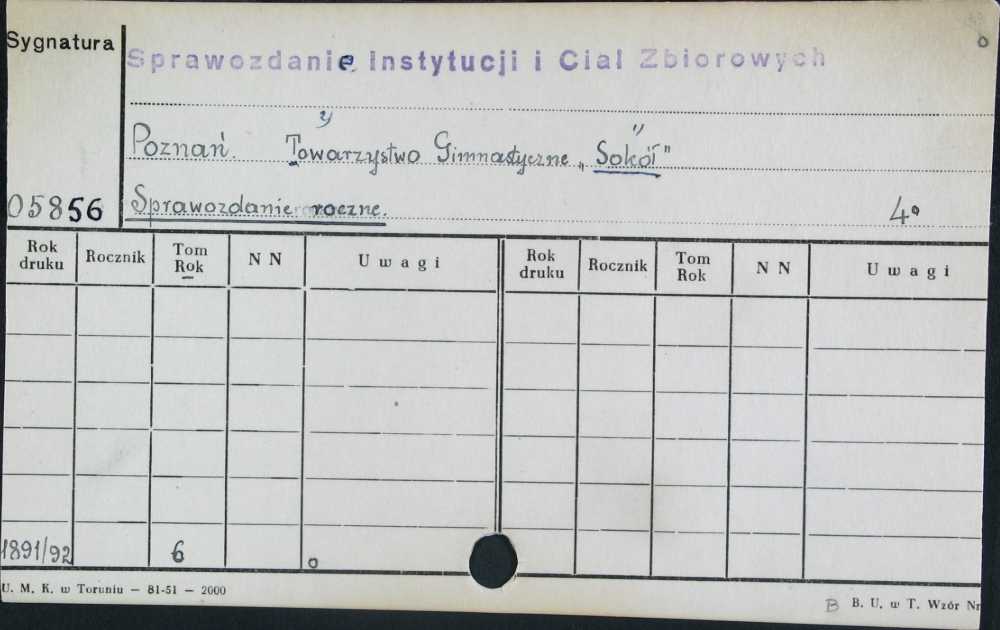 Sygnatura
Sprawozdanie Instytucji i Cial Zbiorowych
Poznań. Towarzystwo Gimnastyczne „Sokół"
05856 Sprawozdanie roczne. 4°
Rok druku Rocznik Tom Rok N N Uwagi Rok druku Rocznik Tom Rok N N Uwagi
1891/92 6
U. M. K. w Toruniu — 81-51 — 2000
B B. U. w T. Wzór Nr